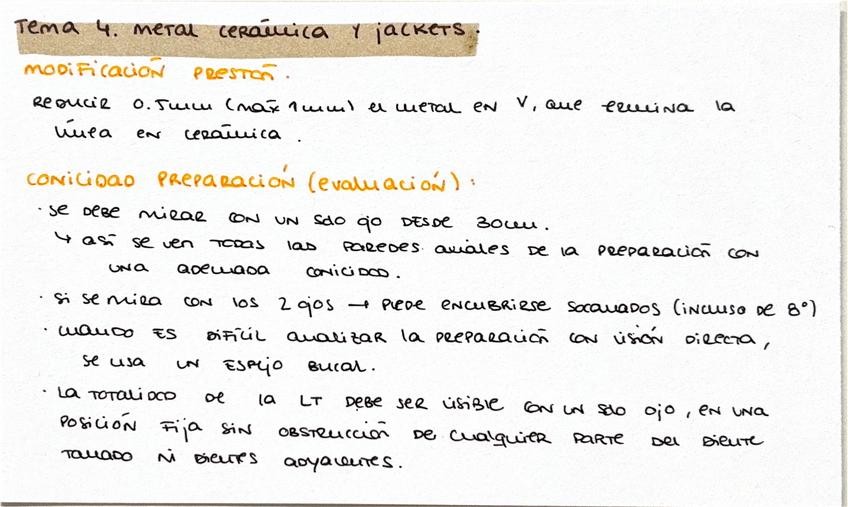 Tema 4. Metal cerámica y jackets.
Modificación Preston.
Reducir 0.5mm (máx 1mm) el metal en V, que termina la
línea en cerámica.
Conicidad preparación (evaluación):
· Se debe mirar con un solo ojo desde 30cm.
↳ así se ven todas las paredes axiales de la preparación con
una adecuada conicidad.
· Si se mira con los 2 ojos → puede encubrirse socavados (incluso de 8°)
· Cuando es difícil analizar la preparación con visión directa,
se usa un espejo bucal.
· La totalidad de la LT debe ser visible con un solo ojo, en una
posición fija sin obstrucción de cualquier parte del diente
tallado ni dientes adyacentes.